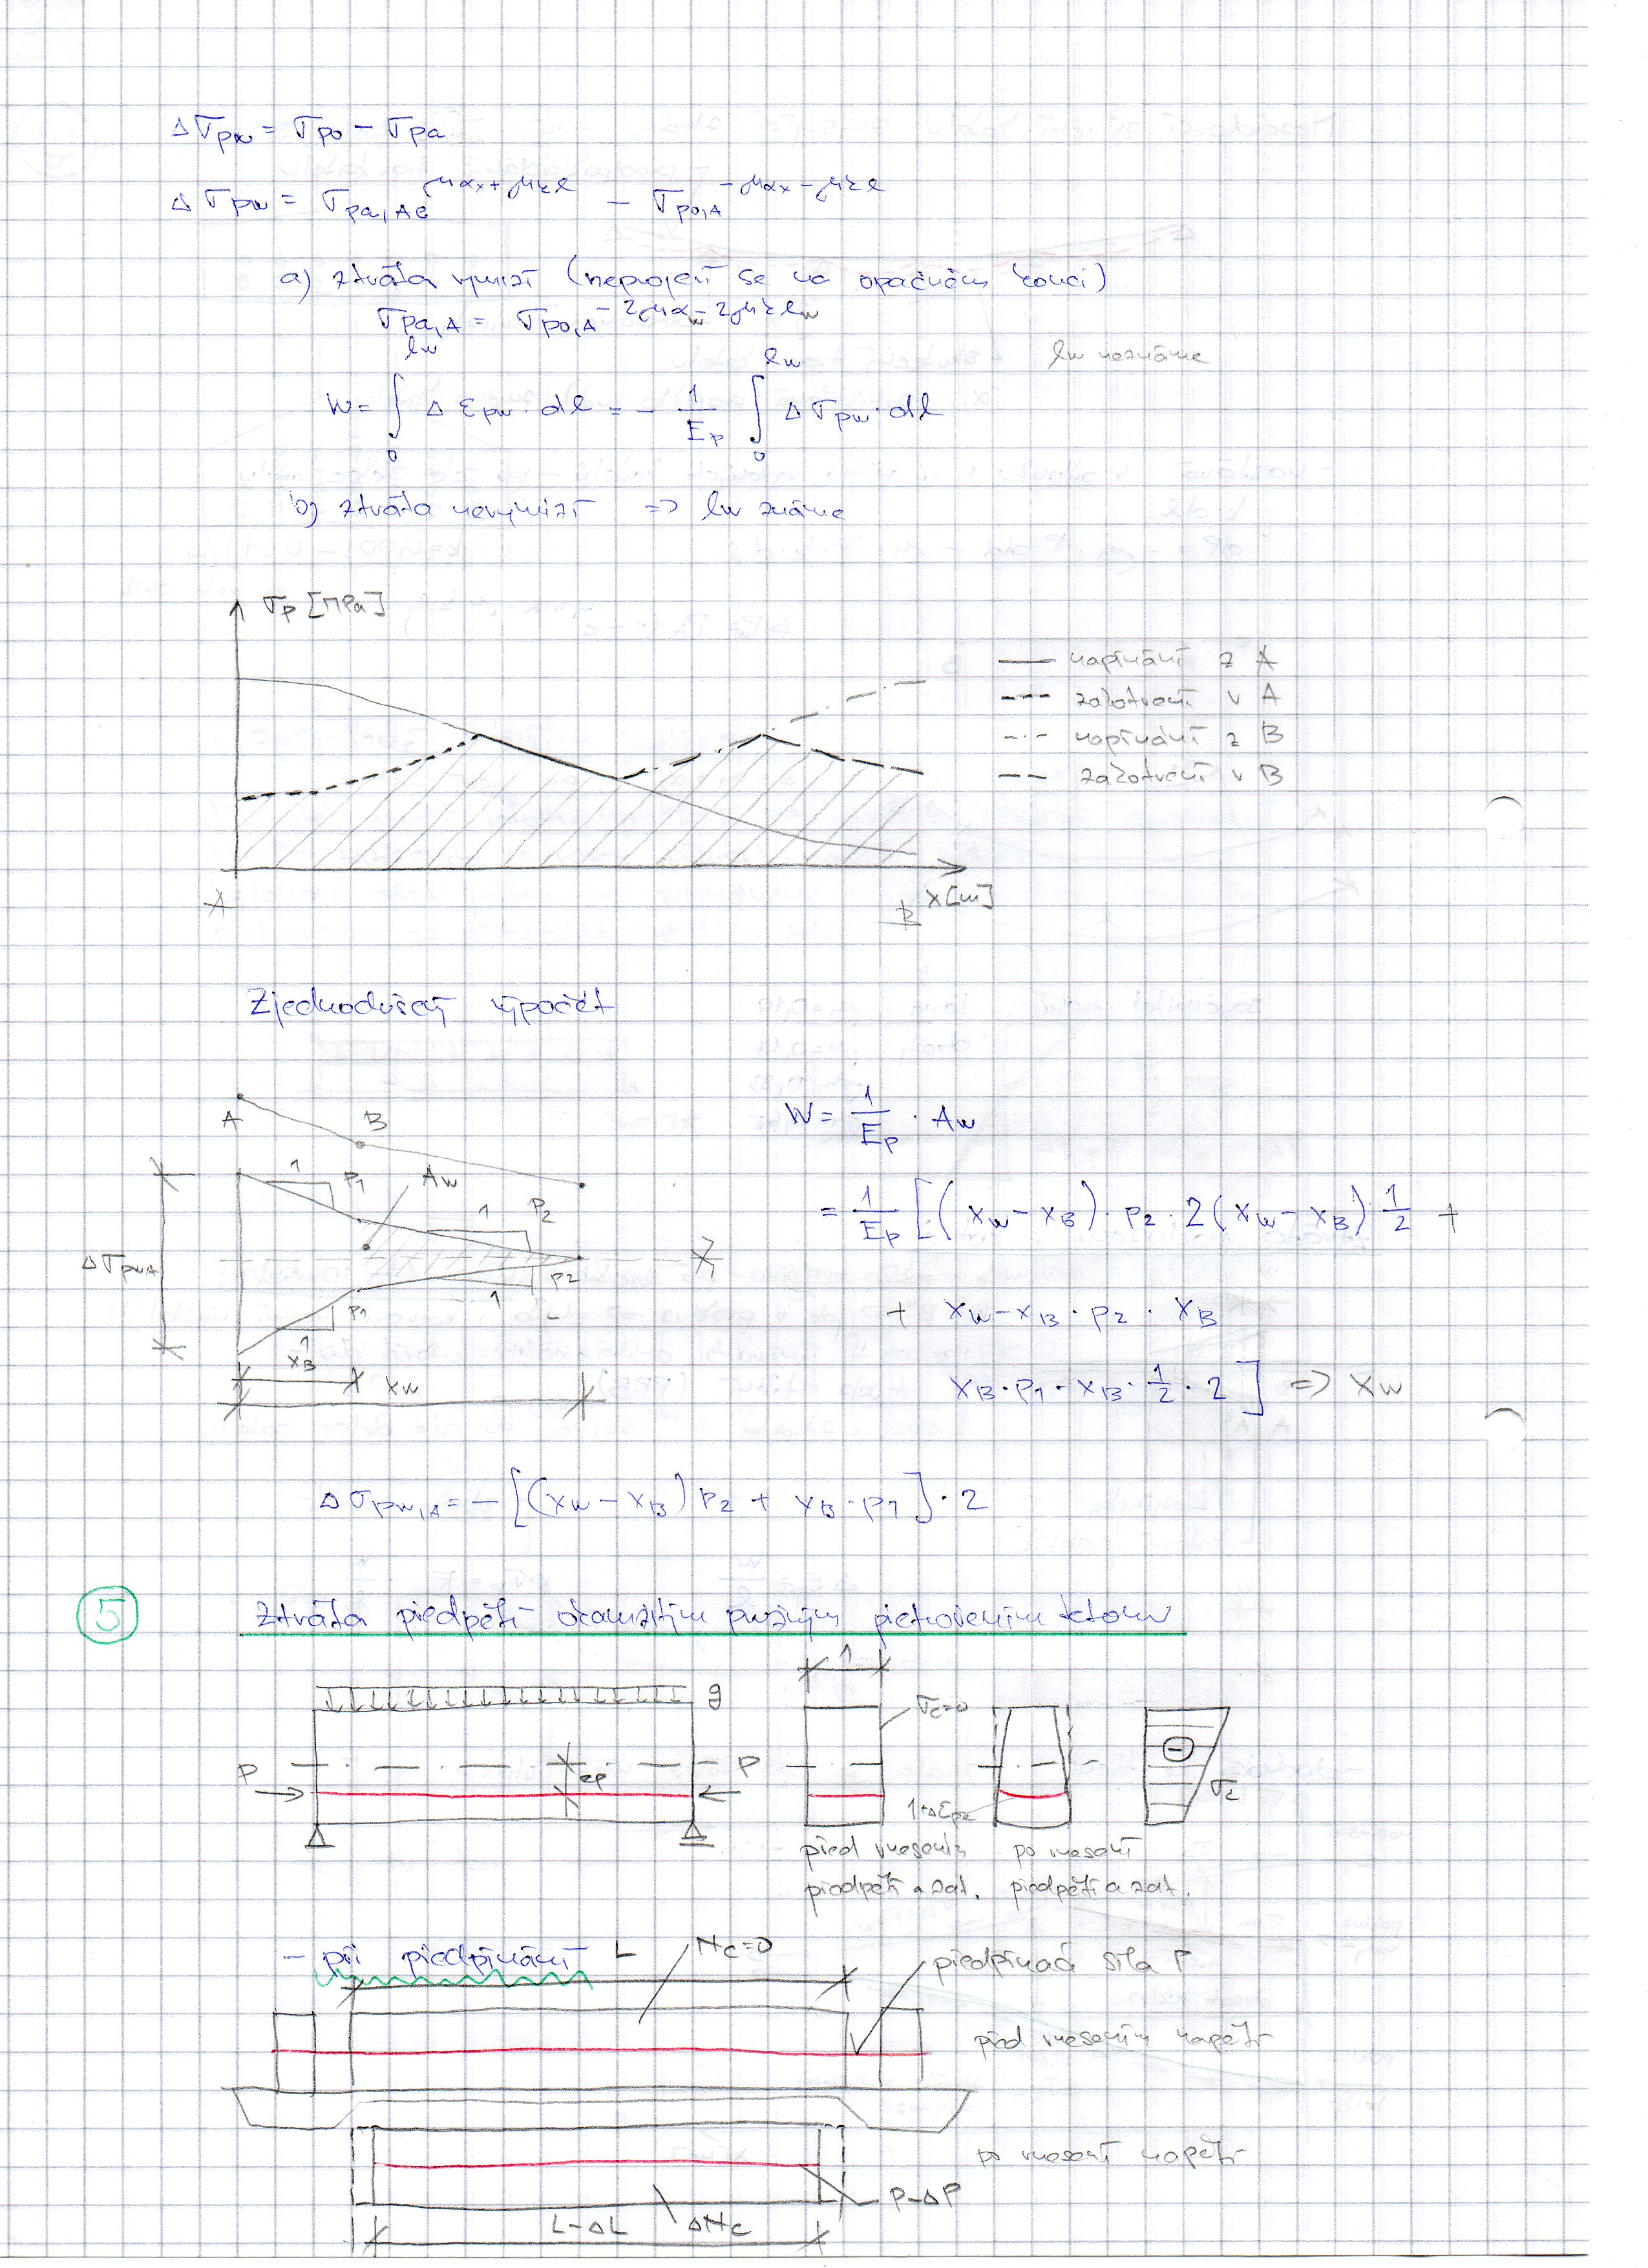 Δσpw = σpo - σpa
Δσpw = σpa,A e^μαx+μkl - σpo,A^-μαx-μkl
a) ztráta vymizí (neprojeví se na opačném konci)
σpa,A = σpo,A^-2μαw-2μklw
lw neznáme
W = ∫0^lw Δεpw · dl = - 1/Ep ∫0^lw Δσpw · dl
b) ztráta nevymizí => lw známe
σp [MPa]
napínání z A
zakotvení v A
napínání z B
zakotvení v B
A
B
x [m]
Zjednodušený výpočet
A
B
1
p1
Aw
1
p2
Δσpw,A
p2
1
p1
1
xB
xw
W = 1/Ep · Aw
= 1/Ep [(xw - xB) · p2 · 2(xw - xB) 1/2 +
+ xw - xB · p2 · xB
xB · p1 · xB · 1/2 · 2] => xw
Δσpw,A = - [(xw - xB) p2 + xB · p1] · 2
5 Ztráta předpětí okamžitým pružným přetvořením betonu
g
1
σc=0
P
ep
P
1+Δεpe
σc
před vnesením
předpětí a zat.
po vnesení
předpětí a zat.
- při předpínání
L
Nc=0
předpínací síla P
před vnesením napětí
po vnesení napětí
P-ΔP
L-ΔL
ΔNc